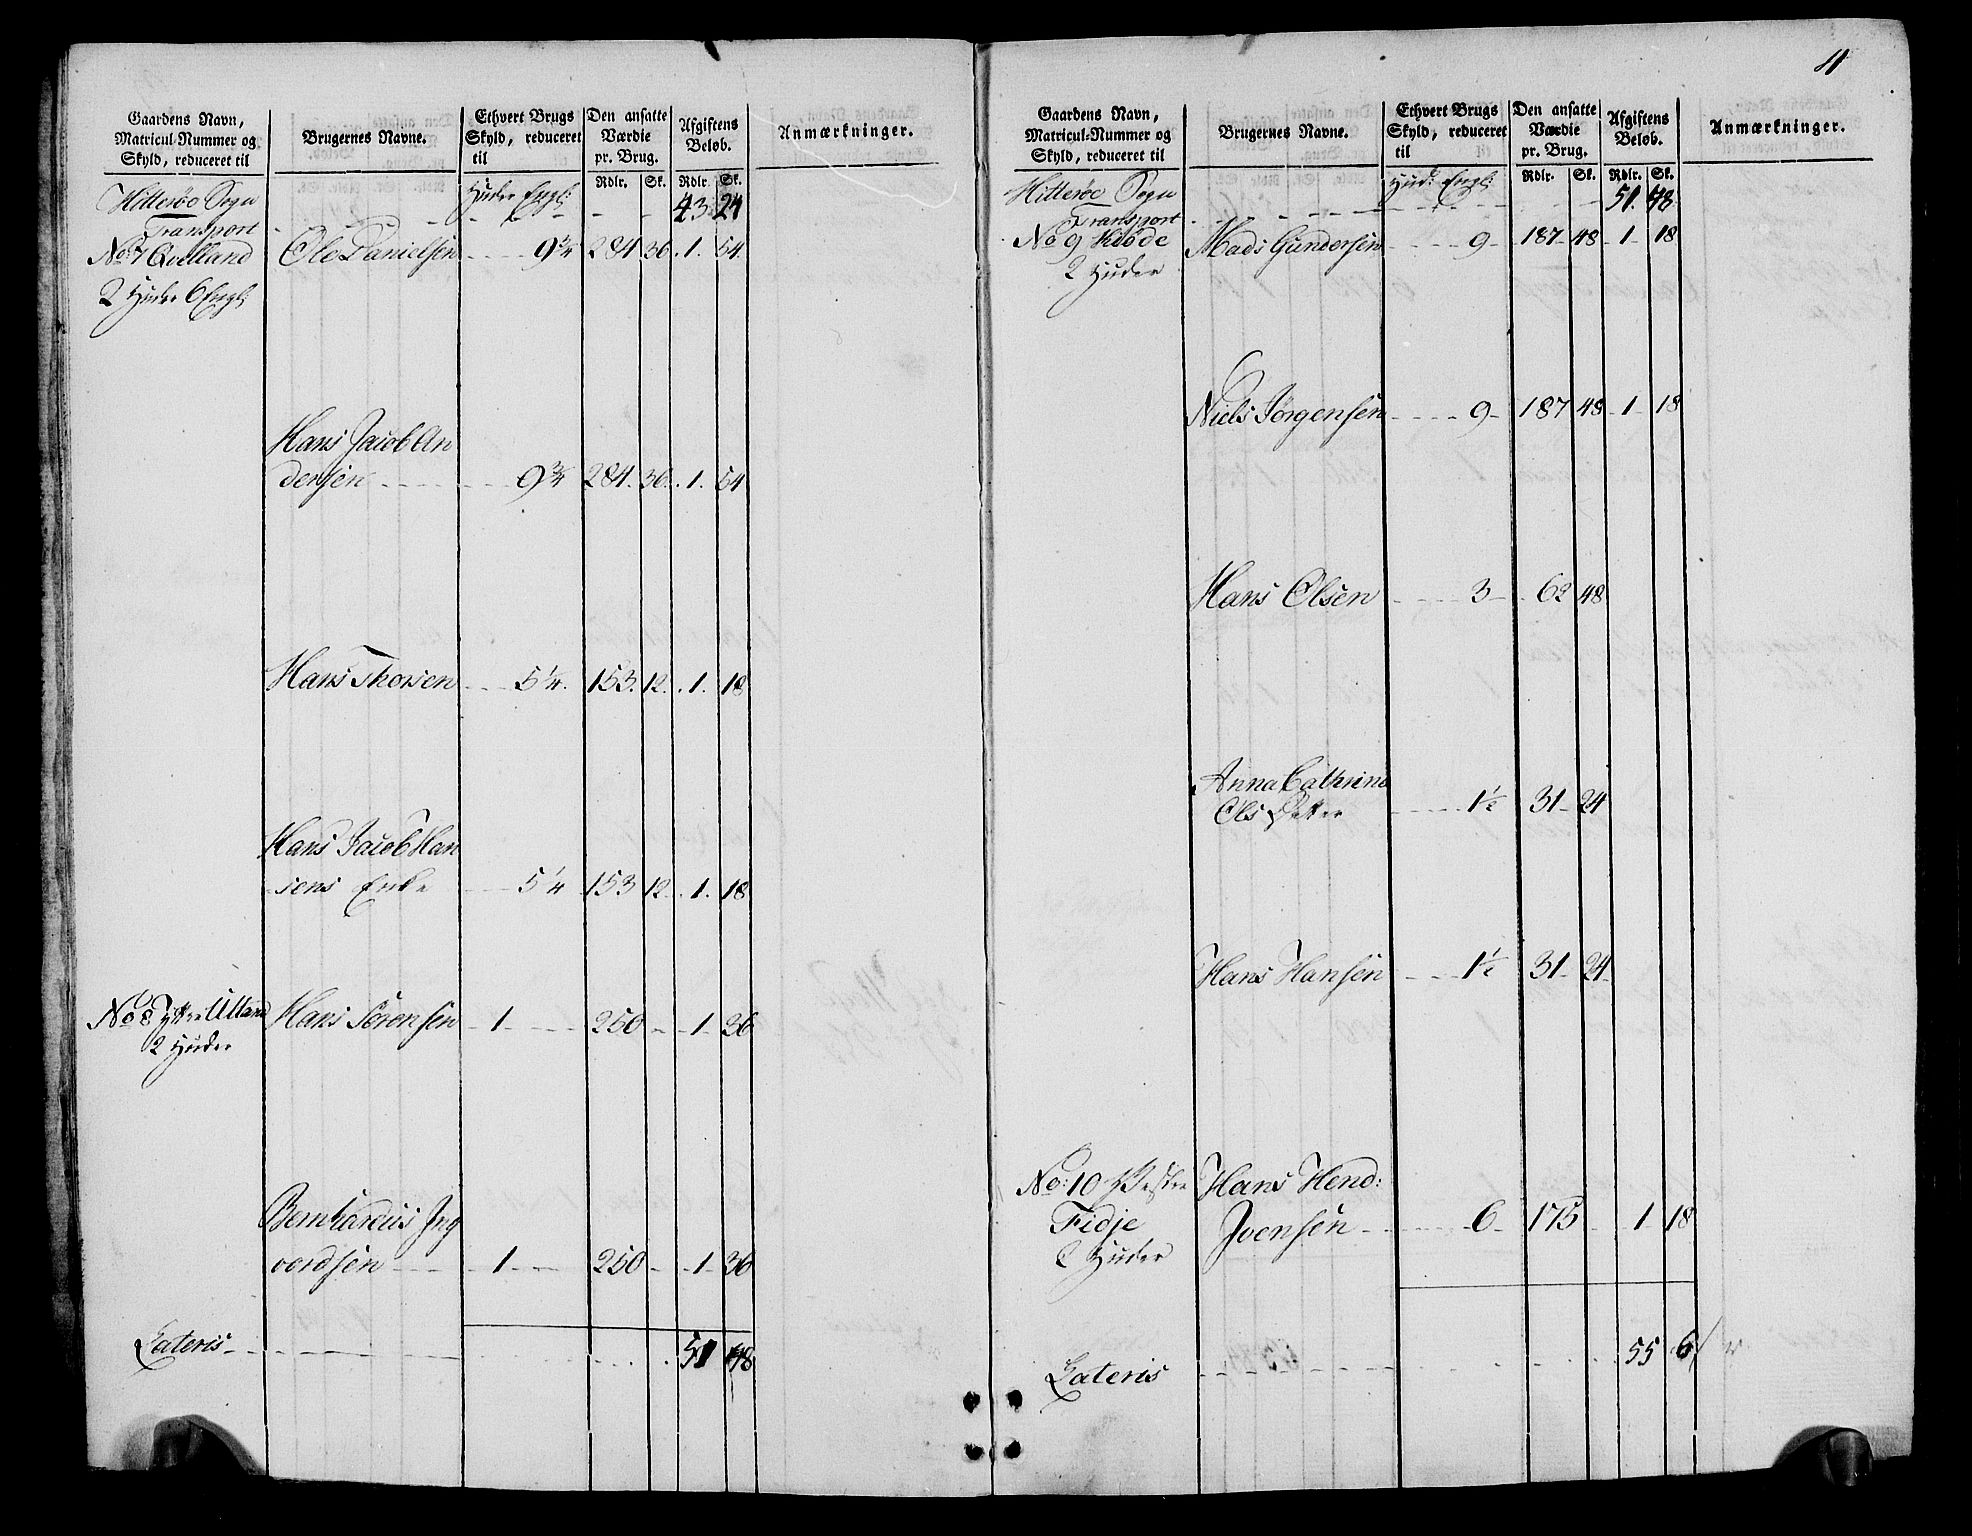 Gaardens Navn,
Matricul-Nummer og
Skyld, reduceret til
Brugernes Navne.
Ethvert Brugs
Skyld, reduceret
til
Den ansatte
Værdie
pr. Brug.
Afgiftens
Beløb.
Anmærkninger.
Rdlr. Sk. Rdlr. Sk.
Hitterøe Sogn Huder Engl:
Transport 43 24
No 7 Qvelland Ole Danielsen 9 3/4 284 36 1 54
2 Huder 6 Engl:
Hans Jacob An
dersen 9 3/4 284 36 1 54
Hans Thorsen 5 1/4 153 12 1 18
Hans Jacob Han
sens Enke 5 1/4 153 12 1 18
No 8 Ytre Ulland Hans Sørensen 1 250 1 36
2 Huder
Bernhardus Ing
vordsen 1 250 1 36
Lateris 51 48
11
Gaardens Navn,
Matricul-Nummer og
Skyld, reduceret til
Brugernes Navne.
Ethvert Brugs
Skyld, reduceret
til
Den ansatte
Værdie
pr. Brug.
Afgiftens
Beløb.
Anmærkninger.
Rdlr. Sk. Rdlr. Sk.
Hitterøe Sogn Hud: Engl:
Transport 51 48
No 9 Kiøde Mads Gundersen 9 187 48 1 18
2 Huder
Niels Jørgensen 9 187 48 1 18
Hans Olsen 3 62 48
Anna Cathrine
Ols Datter 1 1/2 31 24
Hans Hansen 1 1/2 31 24
No: 10 Vestre Hans Hend:
Fidje Ivensen 6 175 1 18
2 Huder
Lateris 55 6